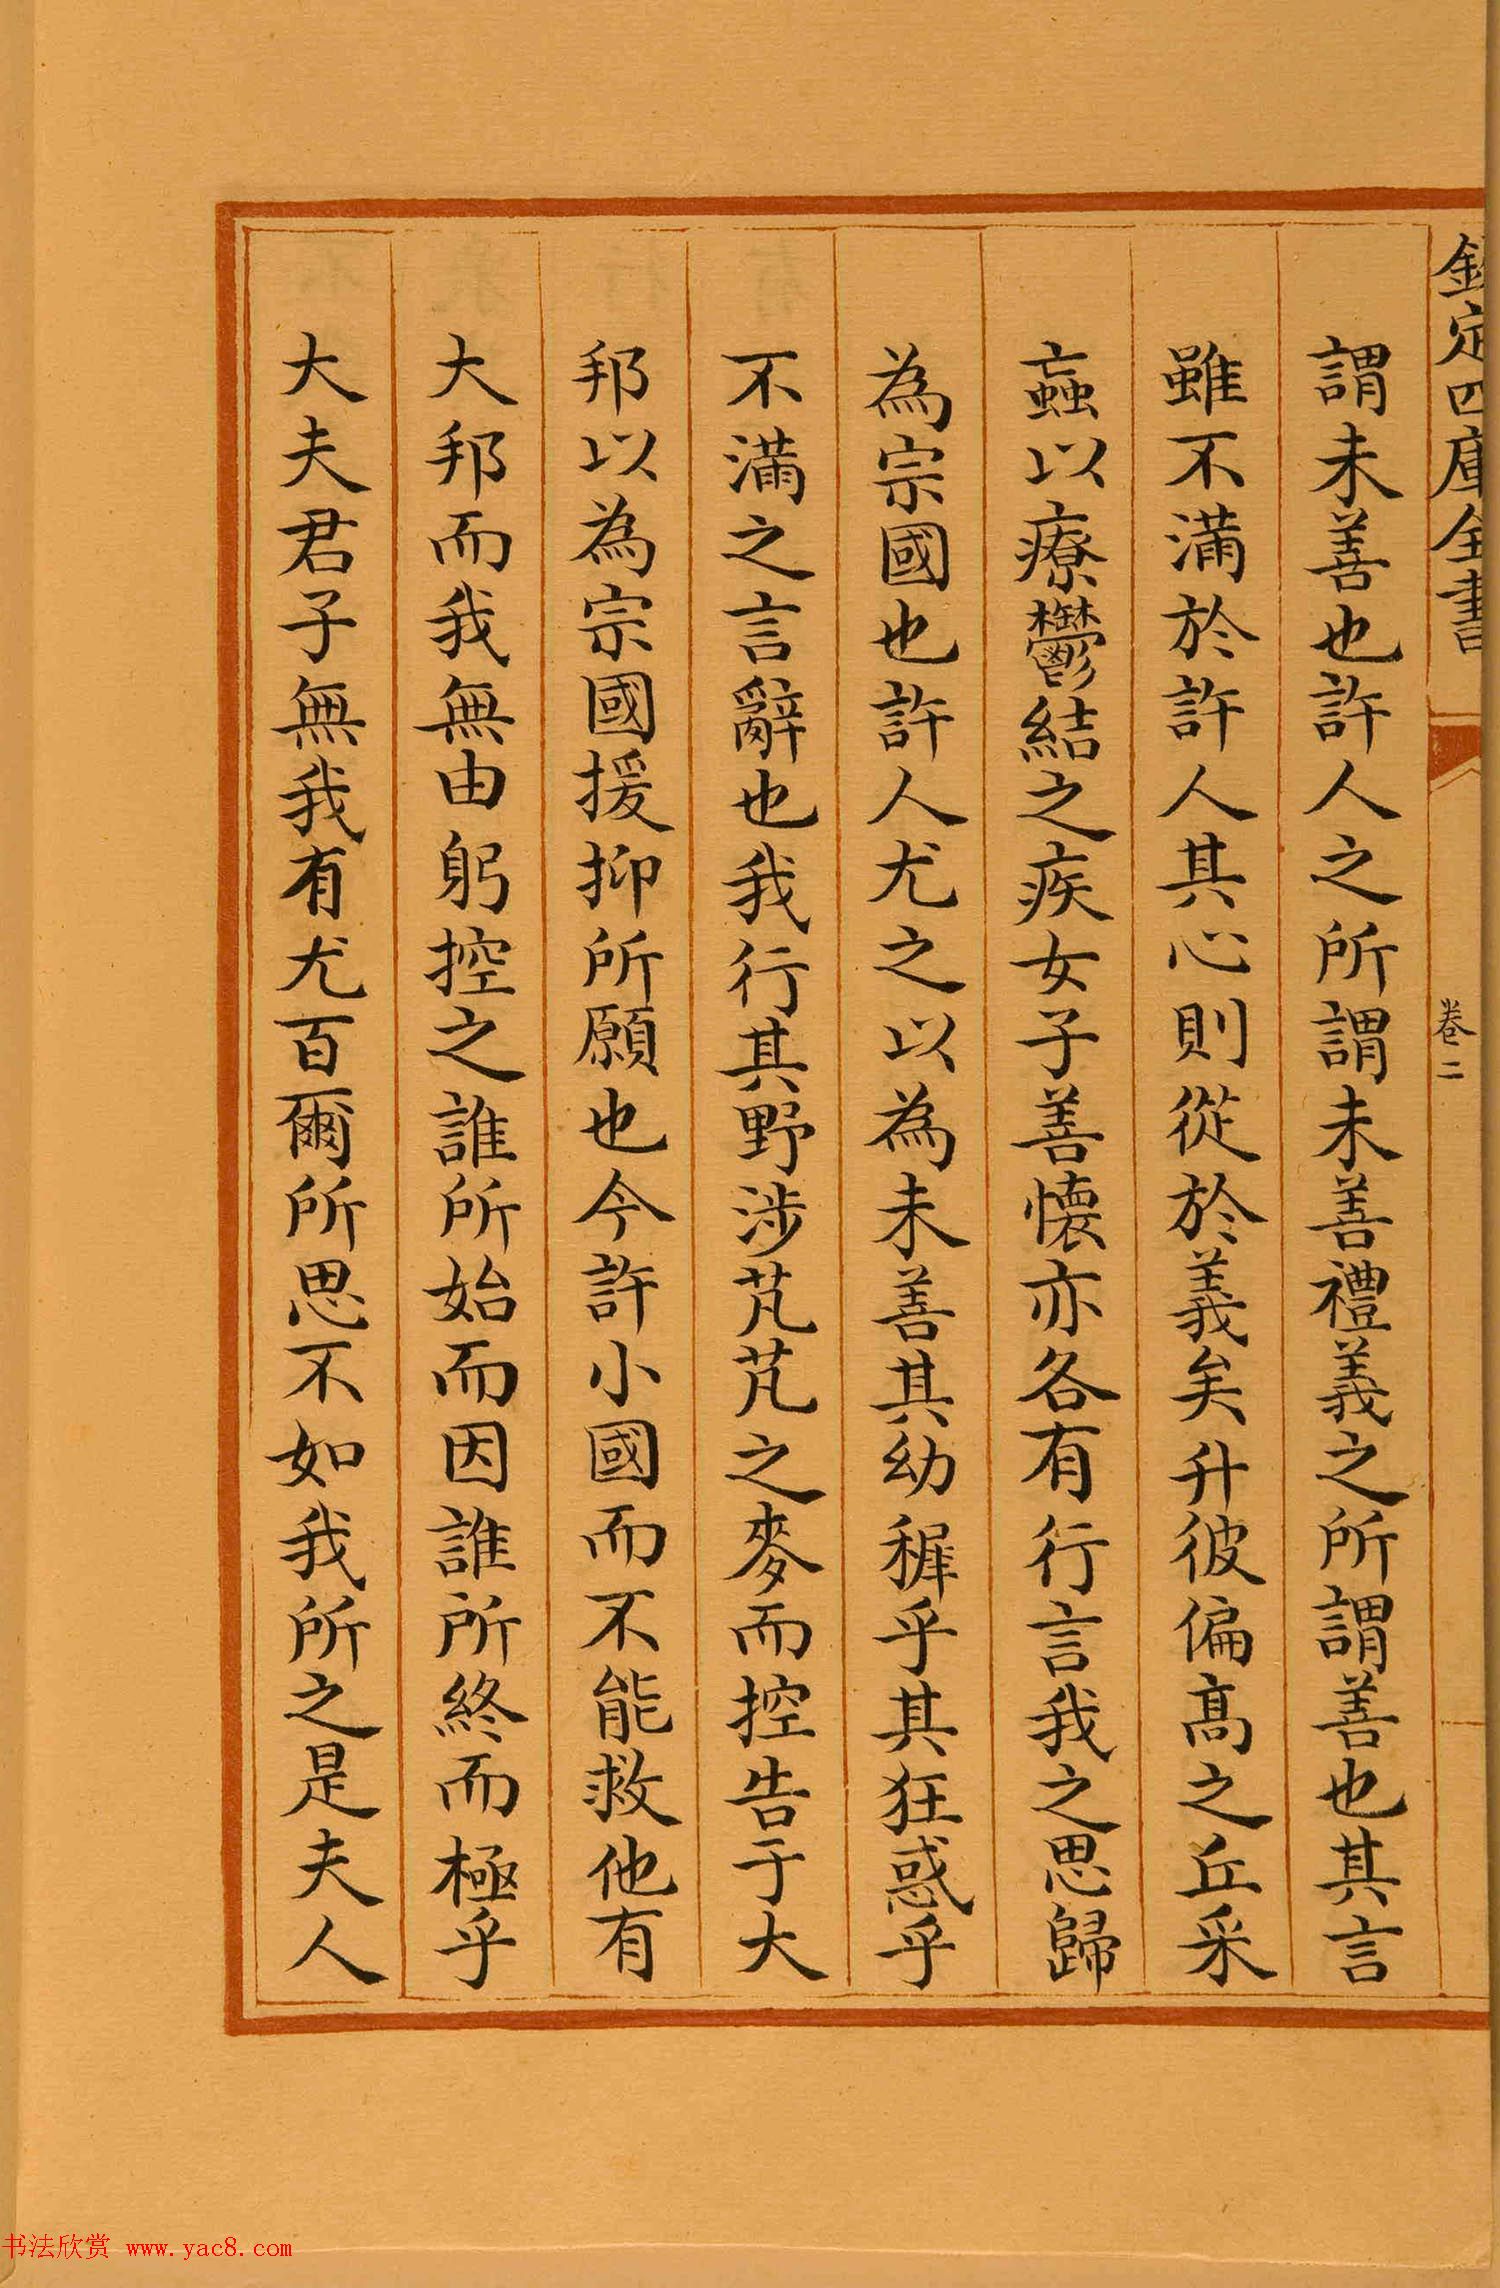 欽定四庫全書
卷二
謂未善也許人之所謂未善禮義之所謂善也其言
雖不滿於許人其心則從於義矣升彼偏高之丘采
蝱以療鬱結之疾女子善懷亦各有行言我之思歸
為宗國也許人尤之以為未善其幼穉乎其狂惑乎
不滿之言辭也我行其野涉芃芃之麥而控告于大
邦以為宗國援抑所願也今許小國而不能救他有
大邦而我無由躬控之誰所始而因誰所終而極乎
大夫君子無我有尤百爾所思不如我所之是夫人
书法欣赏 www.yac8.com